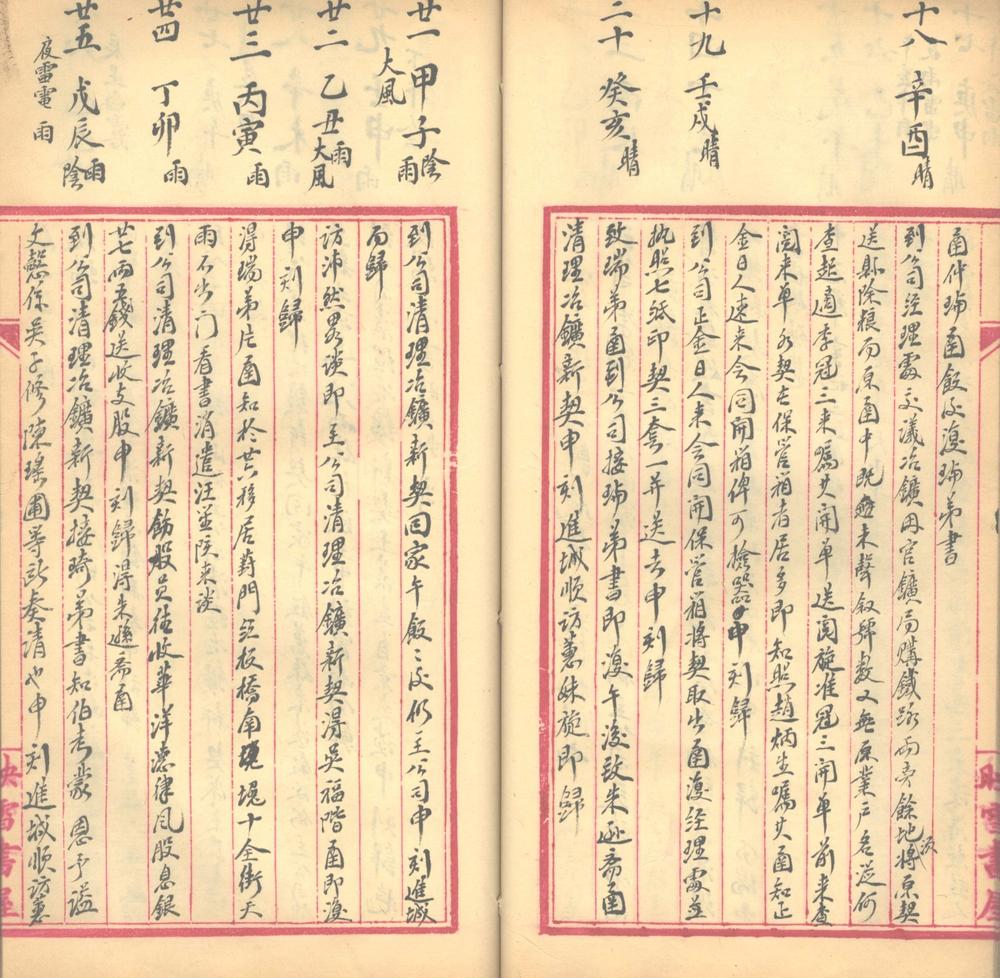 十八 辛酉 晴
函仲瑜函飯後復瑜弟書
到公司經理處交議冶鑛因官鑛局購鐵路兩旁餘地將原契
送縣除糧而原函中既無未聲敘號數又無原業戶名從何
查起適李冠三來囑其開單送閱旋准冠三開單前來查
閱來單各契在保管箱者居多即知照趙炳生囑其函知正
金日人速來会同開箱俾可檢器申刻歸
十九 壬戌 晴
到公司正金日人来会同開保管箱將契取出函復經理處並
執照七紙印契三套一并送去申刻歸
二十 癸亥 晴
致瑞弟函到公司接瑜弟書即復午後致朱遜齋函
清理冶鑛新契申刻進城順訪蕙妹旋即歸
廿一 甲子 陰雨
大風
到公司清理冶鑛新契回家午飯飯後仍至公司申刻進城
而歸
廿二 乙丑 雨大風
訪沛然畧談即至公司清理冶鑛新契得吳福階函即復
申刻歸
廿三 丙寅 雨
得瑞弟片函知於廿六移居對門紅板橋南堍十全街天
雨不出门看書消遣汪並陔来談
廿四 丁卯 雨
到公司清理冶鑛新契飭股員往收華洋德律風股息銀
廿七兩五錢送收支股申刻歸得朱遜齋函
廿五 戊辰 陰雨
夜雷電雨
到公司清理冶鑛新契接琦弟書知伯考蒙 恩予謚
文慤係吳子修陳瑤圃等所奏清也申刻進城順訪蕙
映雪書屋